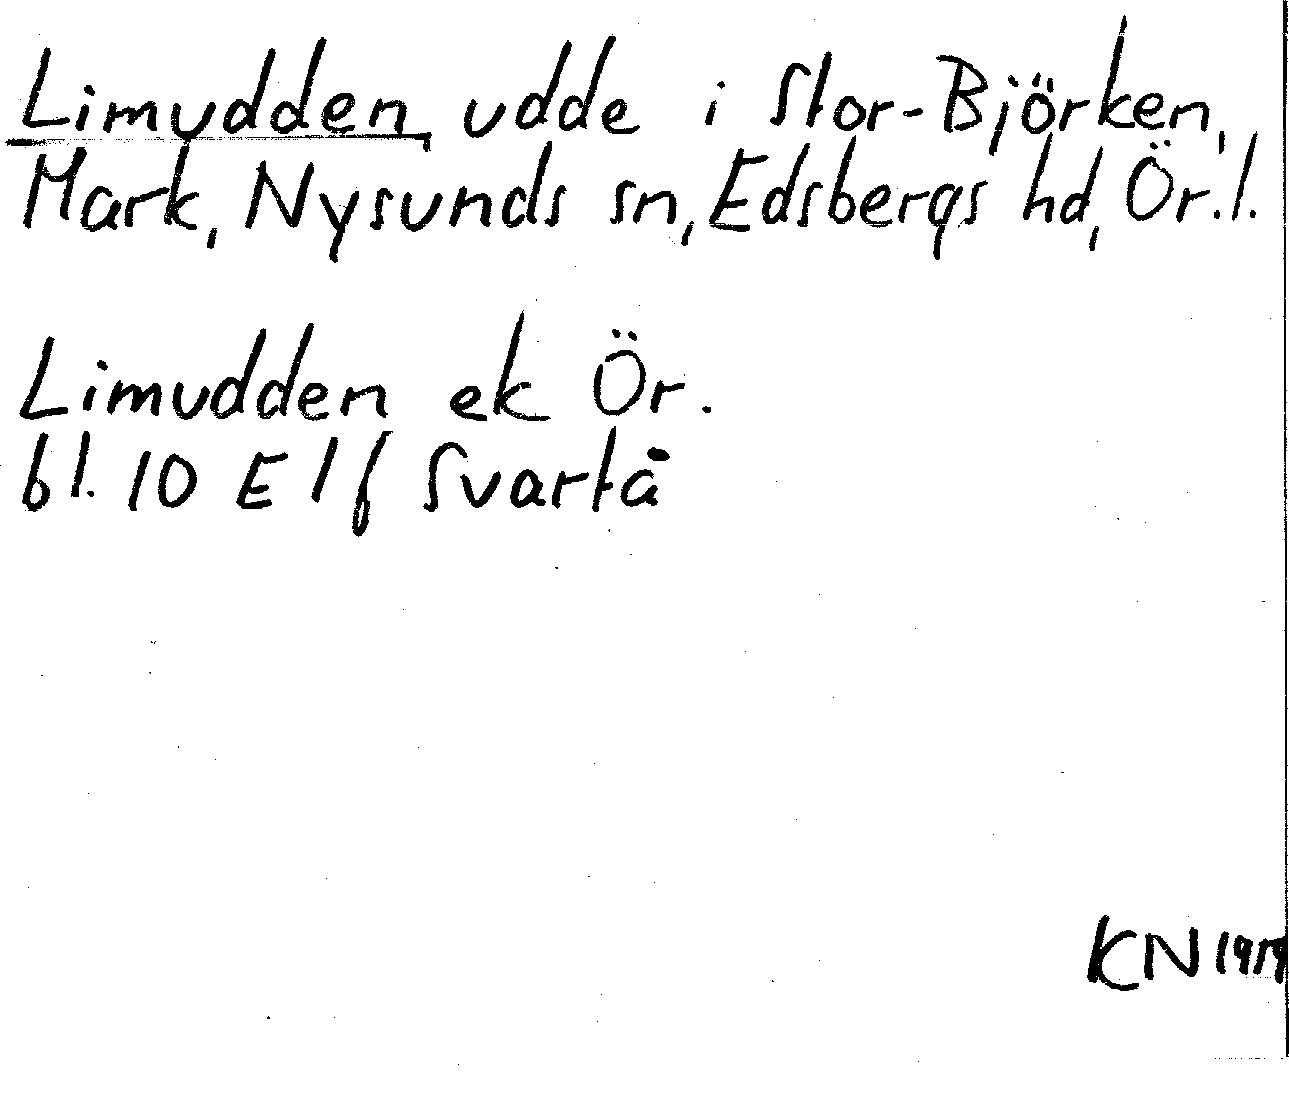 Limudden, udde i Stor-Björken,
Mark, Nysunds sn, Edsbergs hd, Ör.l.
Limudden ek Ör.
bl. 10 E l f Svartå
KN